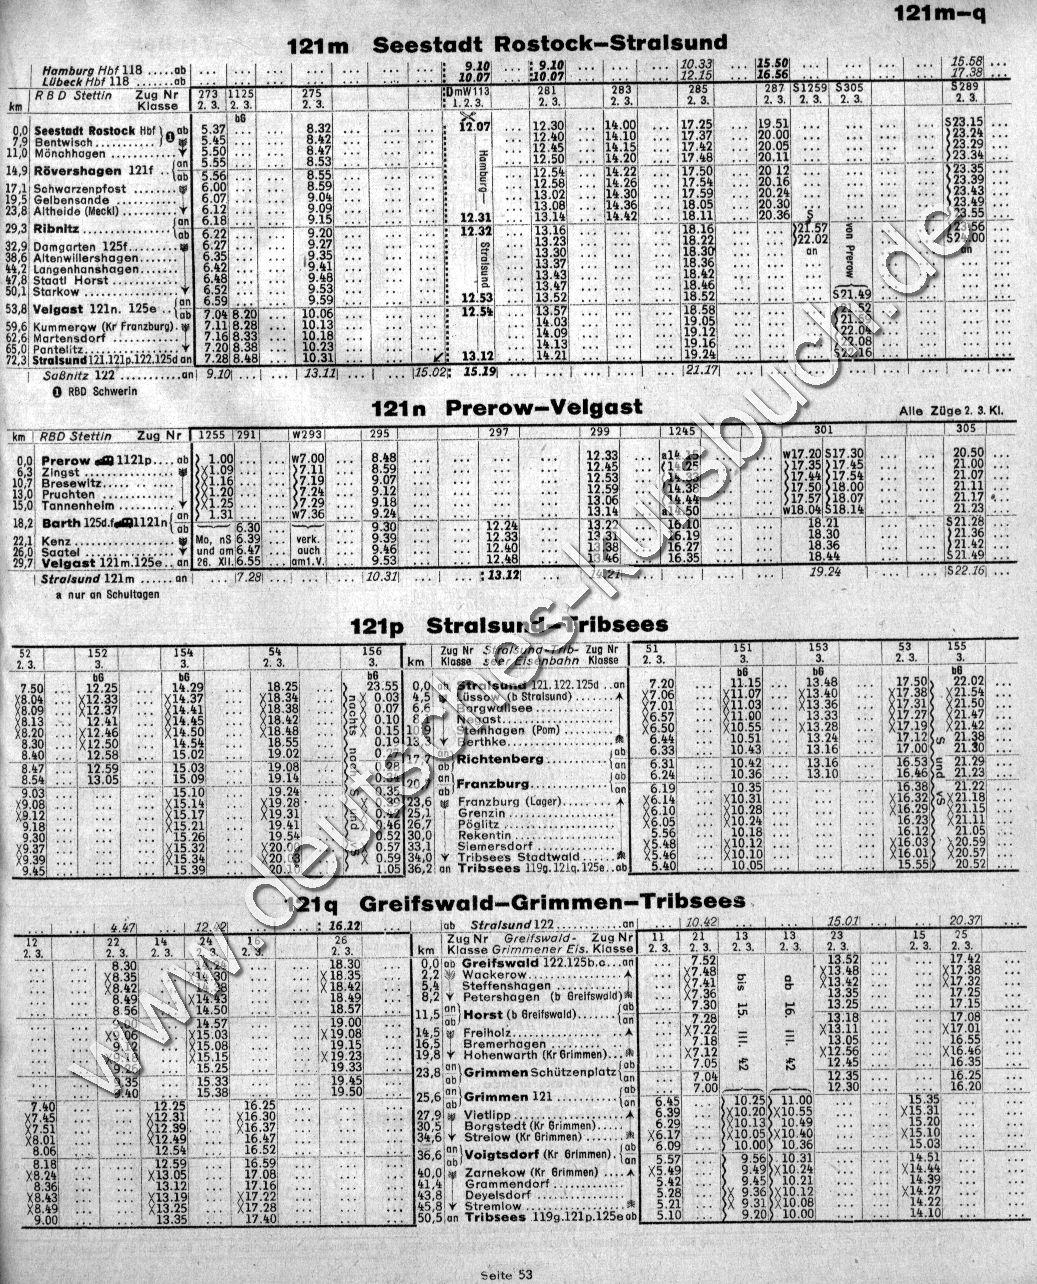 121m–q
121m Seestadt Rostock–Stralsund
Hamburg Hbf 118 ..... ab 9.10 9.10 10.33 15.50 15.58
Lübeck Hbf 118 ..... ab 10.07 10.07 12.15 16.56 17.38
km RBD Stettin Zug Nr Klasse 273 1125 275 DmW113 281 283 285 287 S1259 S305 S289
2. 3. 2. 3. 2. 3. 1. 2. 3. 2. 3. 2. 3. 2. 3. 2. 3. 2. 3. 2. 3. 2. 3.
0,0 Seestadt Rostock Hbf ab 5.37 bG 8.32 12.07 12.30 14.00 17.25 19.51 S23.15
7,9 Bentwisch 5.45 8.42 12.40 14.10 17.37 20.00 23.24
11,0 Mönchhagen 5.50 8.47 12.45 14.15 17.42 20.05 23.29
14,9 Rövershagen 121f an 5.55 8.53 12.50 14.20 17.48 20.11 23.34
ab 5.56 8.55 12.54 14.22 17.50 20 12 23.35
17,1 Schwarzenpfost 6.00 8.59 12.58 14.26 17.54 20.16 23.39
19,5 Gelbensande 6.07 9.04 13.02 14.30 17.59 20.24 23.43
23,8 Altheide (Meckl) 6.12 9.09 13.08 14.36 18.05 20.30 23.49
29,3 Ribnitz an 6.18 9.15 12.31 13.14 14.42 18.11 20.36 S 23.55
ab 6.22 9.20 12.32 13.16 18.16 21.57 23.56
32,9 Damgarten 125f 6.27 9.27 13.23 18.22 22.02 S24.00
38,6 Altenwillershagen 6.35 9.35 13.30 18.30 an an
44,2 Langenhanshagen 6.42 9.41 13.37 18.36
47,8 Staatl Horst 6.48 9.48 13.43 18.42
50,1 Starkow 6.52 9.53 13.47 18.46
53,8 Velgast 121n. 125e an 6.59 9.59 12.53 13.52 18.52 S21.49
ab 7.04 8.20 10.06 12.54 13.57 18.58 21.52
59,6 Kummerow (Kr Franzburg) 7.11 8.28 10.13 14.03 19.05
62,6 Martensdorf 7.16 8.33 10.18 14.09 19.12 22.04
65,0 Pantelitz 7.20 8.38 10.23 14.13 19.16 22.08
72,3 Stralsund 121.121p.122.125d an 7.28 8.48 10.31 13.12 14.21 19.24 S22.16
Saßnitz 122 an 9.10 13.11 15.02 15.19 21.17
Hamburg— Stralsund
von Prerow
❶ RBD Schwerin
121n Prerow–Velgast
Alle Züge 2. 3. Kl.
km RBD Stettin Zug Nr 1255 291 W293 295 297 299 1245 301 305
0,0 Prerow 1121p ab 1.00 W7.00 8.48 12.33 W17.20 S17.30 20.50
6,3 Zingst X1.09 7.11 8.59 12.45 17.35 17.45 21.00
10,7 Bresewitz X1.16 7.19 9.07 12.53 17.44 17.54 21.07
13,0 Pruchten X1.20 7.24 9.12 12.59 14.38 17.50 18.00 21.11
15,0 Tannenheim X1.25 7.29 9.18 13.06 14.44 17.57 18.07 21.17
18,2 Barth 125d.f 1121n an 1.31 W7.36 9.24 13.14 a14.50 W18.04 S18.14 21.23
ab 6.30 9.30 12.24 16.10 18.21 S21.28
22,1 Kenz Mo, nS 6.39 verk. 9.39 12.33 13.31 16.19 18.30 21.36
26,0 Saatel und am 6.47 auch 9.46 12.40 13.38 16.27 18.36 21.42
29,7 Velgast 121m. 125e an 26. XII. 6.55 am1.V. 9.53 12.48 13.46 16.35 18.44 S21.49
Stralsund 121m an 7.28 10.31 13.12 14.21 19.24 S22.16
a nur an Schultagen
121p Stralsund–Tribsees
52 152 154 54 156 km Zug Nr Klasse Stralsund-Tribseer Eisenbahn Zug Nr Klasse 51 151 153 53 155
2. 3. 3. 3. 2. 3. 3. 2. 3. 3. 3. 2. 3. 3.
7.50 12.25 14.29 18.25 23.55 0,0 ab Stralsund 121.122.125d an 7.20 11.15 13.48 17.50 22.02
X8.04 X12.33 X14.37 X18.34 X 0.03 4,5 Lüssow (b Stralsund) X7.06 X11.07 X13.40 X17.38 X21.54
X8.09 X12.37 X14.41 X18.38 X 0.07 6,6 Borgwallsee X7.01 X11.03 X13.36 X17.31 X21.50
X8.13 12.41 X14.45 X18.42 X 0.10 Negast X6.57 X11.00 X13.33 X17.27 X21.47
X8.20 X12.46 X14.50 X18.48 X 0.15 Steinhagen (Pom) X6.50 X10.55 X13.28 X17.19 X21.42
8.30 X12.50 14.54 18.55 0.19 Berthke 6.44 10.51 13.24 17.12 21.38
8.40 12.58 15.02 19.02 17,7 an Richtenberg ab 6.33 10.43 13.16 17.00 21.30
8.47 12.59 15.03 19.08 0.28 ab an 6.31 10.42 13.16 16.53 21.29
8.54 13.05 15.09 19.14 0.34 an Franzburg ab 6.24 10.36 13.10 16.46 21.23
9.03 15.10 19.24 0.35 ab an 6.19 10.35 16.38 21.22
X9.08 X15.14 X19.28 23,6 Franzburg (Lager) X6.14 X10.31 X16.32 X21.18
X9.12 X15.17 X19.31 25,1 Grenzin X6.10 X10.28 X16.29 X21.15
9.18 X15.21 19.41 26,7 Pöglitz X6.05 X10.24 16.23 X21.11
9.30 15.26 19.54 0.52 30,0 Rekentin 5.56 10.18 16.12 21.05
X9.37 X15.32 0.57 33,1 Siemersdorf X5.48 X10.12 X16.03 X20.59
X9.39 X15.34 X 0.59 34,0 Tribsees Stadtwald X5.46 X10.10 X16.01 X20.57
9.45 15.39 1.05 36,2 an Tribsees 119g.121q.125e ab 5.40 10.05 15.55 20.52
121q Greifswald–Grimmen–Tribsees
4.47 16.12 ab Stralsund 122 an 10.42 15.01 20.37
12 22 14 24 16 26 km Zug Nr Klasse Greifswald-Grimmener Eis. Zug Nr Klasse 11 21 13 13 23 15 25
2. 3. 2. 3. 2. 3. 2. 3. 2. 3. 2. 3. 2. 3. 2. 3. 2. 3. 2. 3. 2. 3. 2. 3. 2. 3.
8.30 18.30 0,0 ab Greifswald 122.125b.c an 7.52 13.52 17.42
X8.35 X18.35 2,2 Wackerow X7.48 X13.48 X17.38
X8.42 X18.42 5,4 Steffenshagen X7.41 X13.42 X17.32
8.49 X14.43 18.49 8,2 Petershagen (b Greifswald) X7.36 13.35 17.25
8.56 14.50 18.57 11,5 an Horst (b Greifswald) ab 7.30 13.25 17.15
14.57 19.00 ab an 7.28 13.18 17.08
X15.03 X19.08 14,5 Freiholz X7.22 X13.11 X17.01
15.08 19.15 16,5 Bremerhagen 7.18 13.05 16.55
X15.15 X19.23 19,8 Hohenwarth (Kr Grimmen) X7.12 X12.56 X16.46
15.25 19.33 23,8 an Grimmen Schützenplatz ab 7.05 12.45 16.35
9.35 15.33 19.45 ab an 7.04 12.35 16.25
9.40 15.38 19.50 25,6 an Grimmen 121 ab 7.00 12.30 16.20
7.40 12.25 16.25 ab an 6.45 10.25 11.00 15.35
X7.45 X12.31 X16.30 27,9 Vietlipp 6.39 X10.20 X10.55 X15.31
X7.51 X12.39 X16.37 30,5 Borgstedt (Kr Grimmen) 6.29 X10.13 10.49 15.20
X8.01 X12.49 16.47 34,6 Strelow (Kr Grimmen) X6.17 X10.05 X10.40 X15.10
8.06 12.54 16.52 36,6 an Voigtsdorf (Kr Grimmen) ab 6.09 10.00 10.36 15.03
8.18 12.59 16.59 ab an 5.57 9.56 10.31 14.51
X8.24 X13.05 17.08 40,0 Zarnekow (Kr Grimmen) X5.49 9.49 X10.24 X14.44
8.36 13.12 17.16 41,4 Grammendorf 5.42 9.45 10.21 14.39
X8.43 X13.19 X17.22 43,8 Deyelsdorf 5.28 X 9.36 X10.12 X14.27
X8.49 X13.25 X17.28 45,8 Stremlow 5.21 X 9.31 X10.08 14.22
9.00 13.35 17.40 50,5 an Tribsees 119g.121p.125e ab 5.10 9.20 10.00 14.10
bis 15. III. 42
ab 16. III. 42
Seite 53
www.deutsches-kursbuch.de